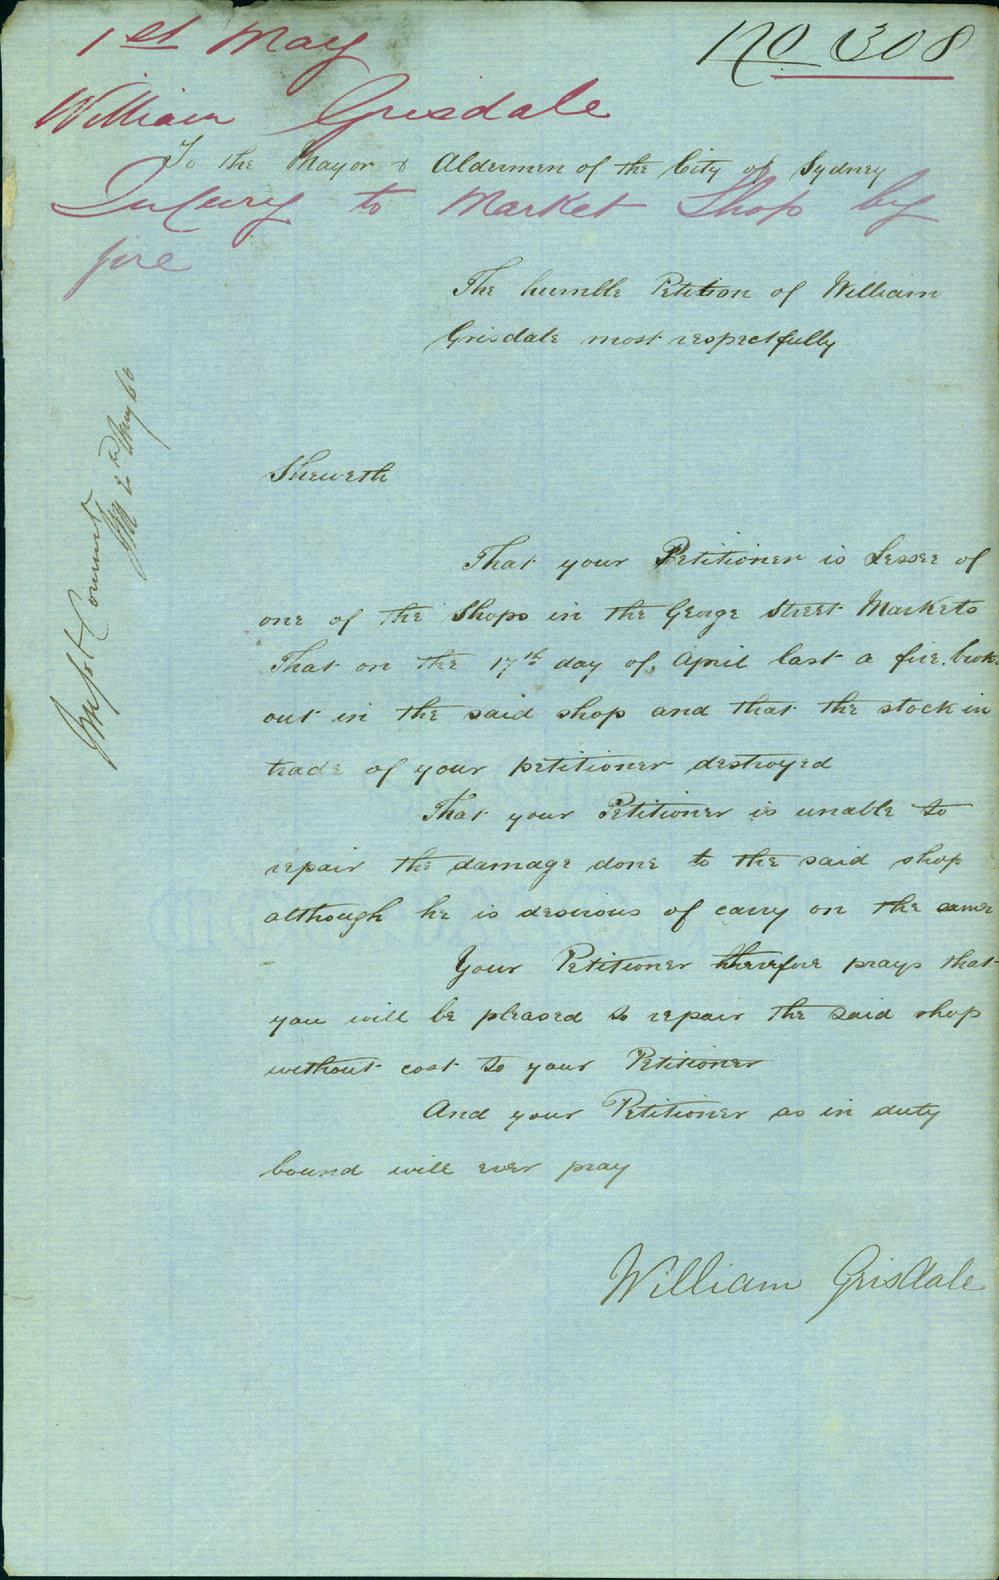 1st May
No 308
William Grisdale
To the Mayor & Aldermen of the City of Sydney
Injury to Market Shop by
fire
The humble Petition of William
Grisdale most respectfully
Sheweth
That your Petitioner is Lessee of
one of the Shops in the George Street Markets
That on the 17th day of April last a fire broke
out in the said shop and that the stock in
trade of your petitioner destroyed
That your Petitioner is unable to
repair the damage done to the said shop
although he is desirous of carry on the same
Your Petitioner therefore prays that
you will be pleased to repair the said shop
without cost to your Petitioner
And your Petitioner as in duty
bound will ever pray
William Grisdale
Committ
2nd May 60